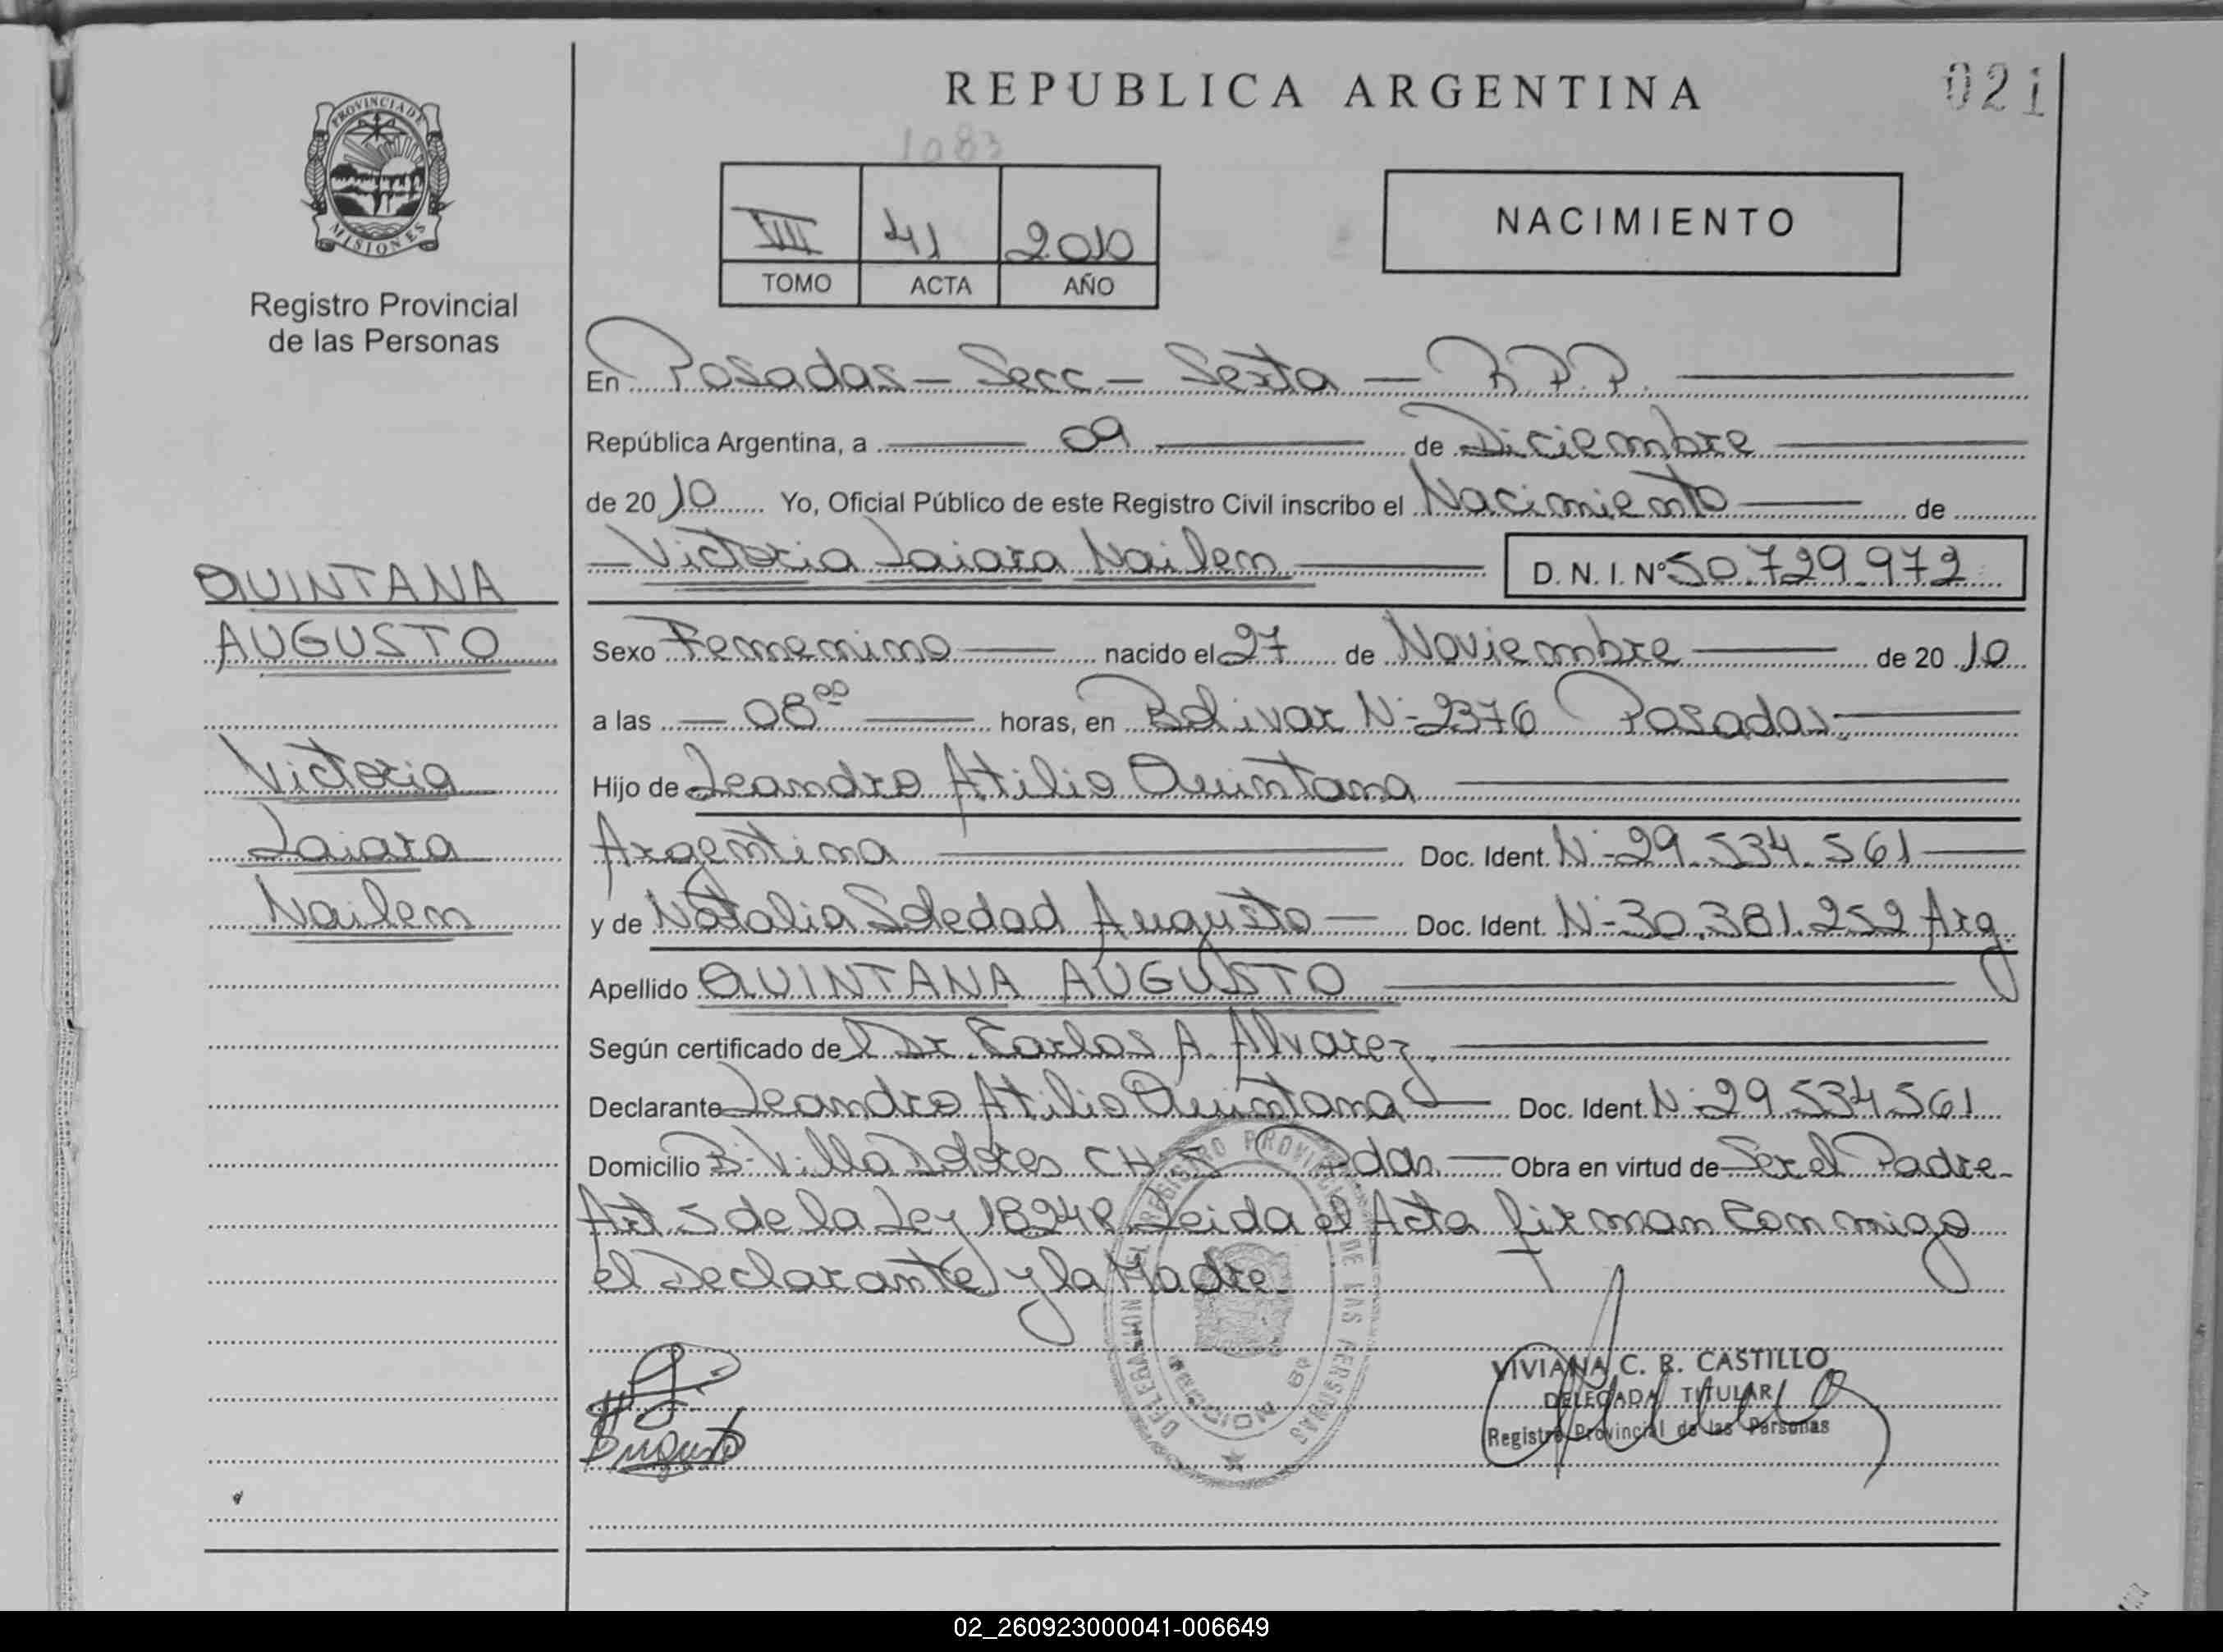 REPUBLICA ARGENTINA
021
1083
PROVINCIA DE
MISIONES
Registro Provincial
de las Personas
VIII 41 2010
TOMO ACTA AÑO
NACIMIENTO
En Posadas - Secc - Sexta - R.P.P.
República Argentina, a 09 de Diciembre
de 2010 Yo, Oficial Público de este Registro Civil inscribo el Nacimiento de
Victoria Laiara Nailem D.N.I. Nº 50.729.972
QUINTANA
AUGUSTO
Victoria
Laiara
Nailem
Sexo Femenino nacido el 27 de Noviembre de 2010
a las 08⁰⁰ horas, en Bolivar Nº 2376 Posadas.
Hijo de Leandro Atilio Quintana
Argentina Doc. Ident. Nº 29.534.561
y de Natalia Soledad Augusto Doc. Ident. Nº 30.381.252 Arg.
Apellido QUINTANA AUGUSTO
Según certificado del Dr. Carlos A. Alvarez
Declarante Leandro Atilio Quintana Doc. Ident. Nº 29.534.561
Domicilio Bº Villa Dolores CH Obra en virtud de Ser el Padre
Art 5 de la Ley 18248 Leida el Acta firman conmigo
el Declarante y la Madre.
REGISTRO PROVINCIAL DE LAS PERSONAS
Augusto
VIVIANA C. R. CASTILLO
DELEGADA TITULAR
Registro Provincial de las Personas
02_260923000041-006649